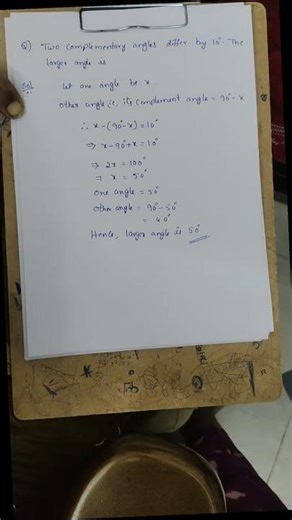 Q) Two complementary angles differ by 10°. The
larger angle is
Sol: let one angle be x.
Other angle i.e, its complement angle = 90° - x
∴ x - (90° - x) = 10°
⇒ x - 90° + x = 10°
⇒ 2x = 100°
⇒ x = 50°
One angle = 50°
Other angle = 90° - 50°
= 40°
Hence, larger angle is 50°